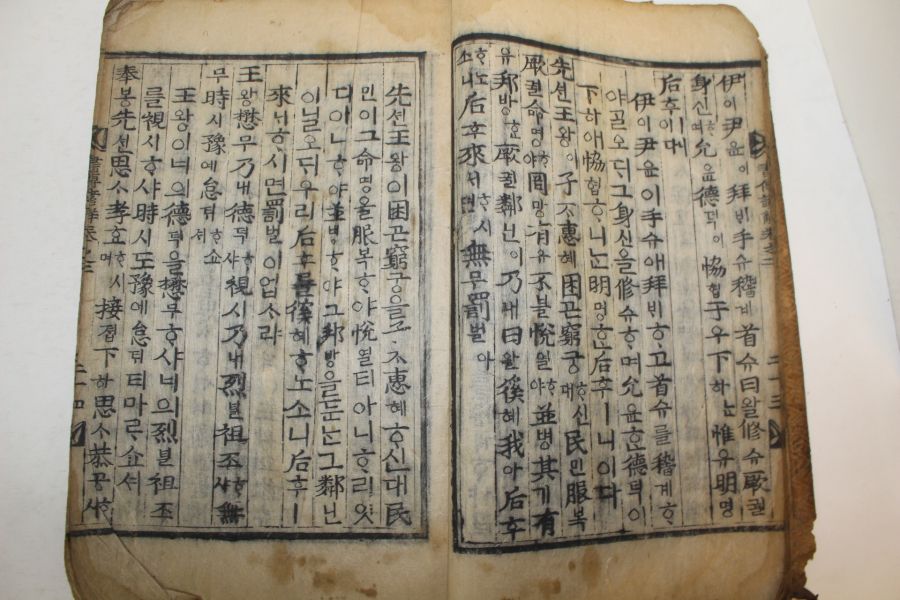 伊이尹윤이拜ᄇᆡ手슈稽계首슈曰왈修슈厥궐
身신ᄒᆞ며允윤德덕이協협于우下하ᄂᆞᆫ惟유明명
后후ㅣ니이다
伊이尹윤이手슈애拜ᄇᆡᄒᆞ고首슈를稽계ᄒᆞ
야ᄀᆞᆯ오ᄃᆡ그身신을修슈ᄒᆞ며允윤ᄒᆞᆫ德덕이
下하애協협ᄒᆞᄂᆞ니ᄂᆞᆫ明명ᄒᆞᆫ后후ㅣ니이다
先션王왕이子ᄌᆞ惠혜困곤窮궁ᄒᆞ신ᄃᆡ民민服복
厥궐命명ᄒᆞ야罔망有유不블悅열ᄒᆞ야並병其기有
유邦방ᄒᆞᆫ厥궐鄰닌이乃내曰왈徯혜我아后후
ᄒᆞ노소니后후來ᄅᆡᄒᆞ시면無무罰벌아
先션王왕이困곤窮궁을ᄌᆞ惠혜ᄒᆞ신대民
민이그命명을服복ᄒᆞ야悅열티아니ᄒᆞ리잇
디아닌ᄒᆞ야並병ᄒᆞ야그邦방을둔ᄂᆞᆫ그鄰닌
이닐오ᄃᆡ우리后후를徯혜ᄒᆞ노소니后후ㅣ
來ᄅᆡᄒᆞ시면罰벌이업스랴
王왕懋무乃내德덕ᄒᆞ샤視시乃내烈렬祖조ᄒᆞ샤無
무時시豫예怠ᄐᆡᄒᆞ쇼셔
王왕이네의德덕을懋무ᄒᆞ샤네의烈렬祖조
를視시ᄒᆞ샤時시도豫예怠ᄐᆡ티마ᄅᆞ쇼셔
奉봉先션思ᄉᆞ孝효ᄒᆞ시며接졉下하思ᄉᆞ恭공ᄒᆞ샤